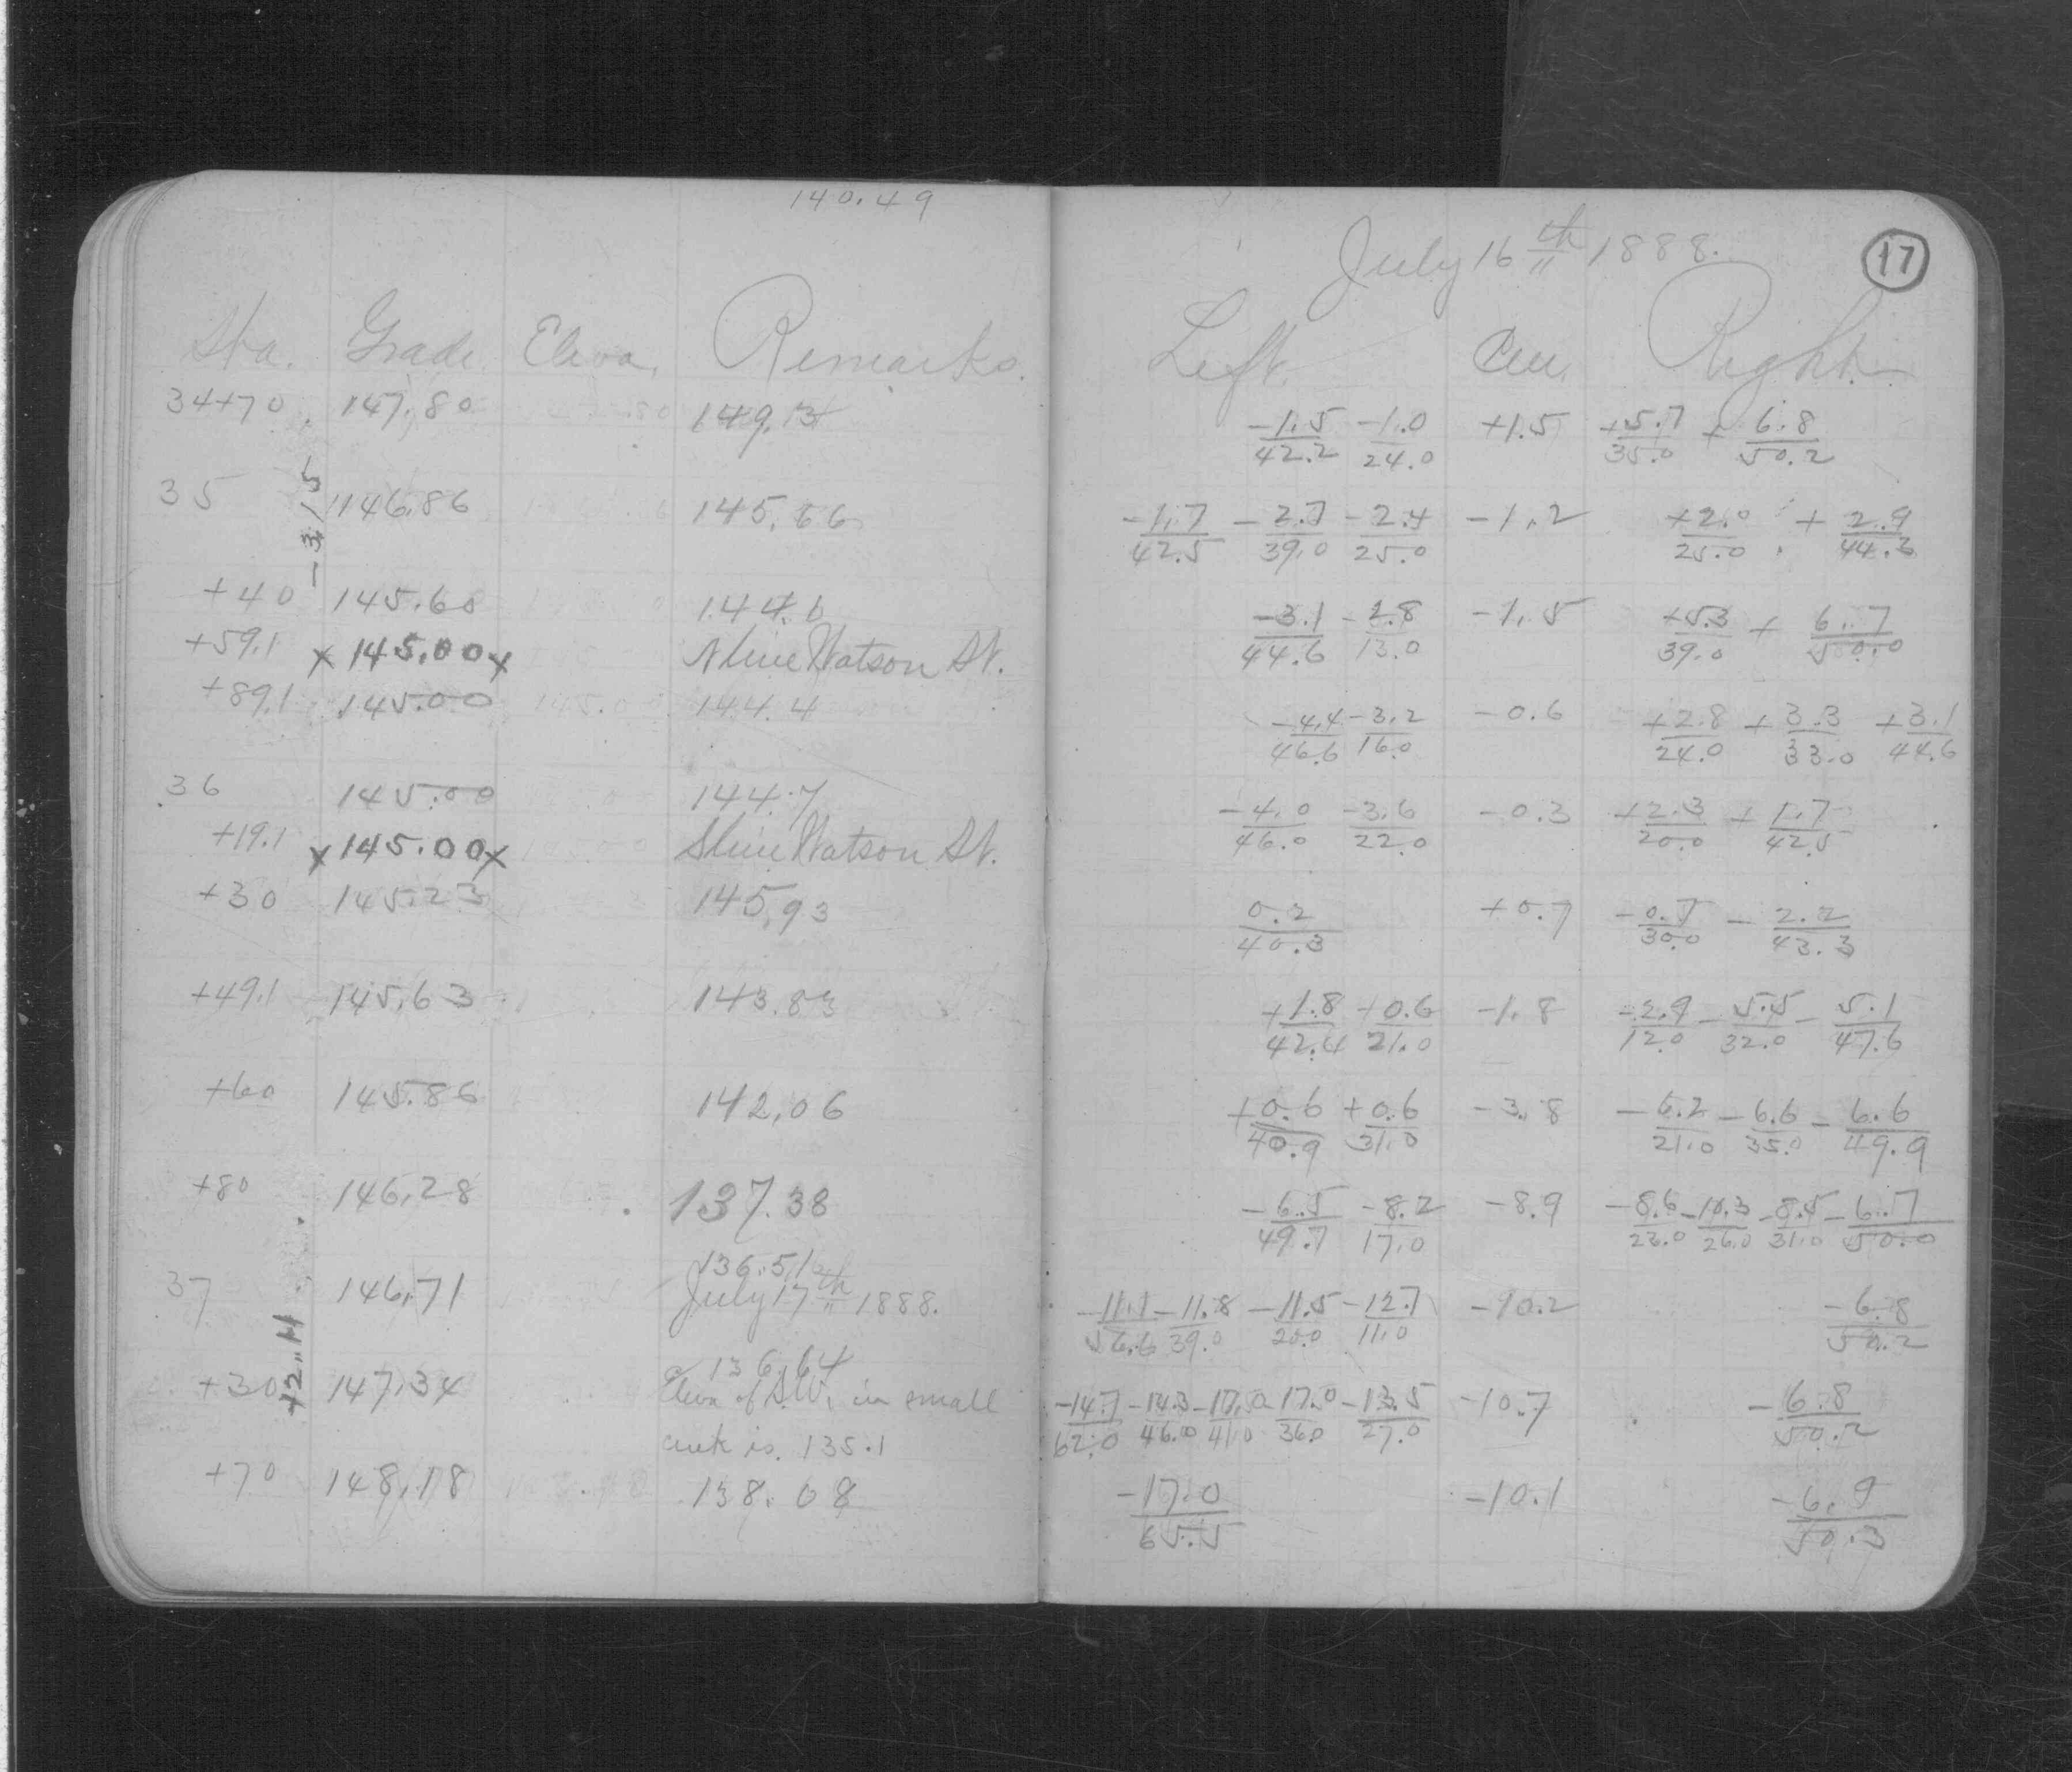 140.49
July 16th 1888.
17
Sta. Grade Eleva. Remarks. Left. Cen. Right.
34+70 147.80 149.3 -1.5/42.2 -1.0/24.0 +1.5 +5.7/35.0 +6.8/50.2
35 146.86 145.66 -1.7/42.5 -2.7/39.0 -2.4/25.0 -1.2 +2.0/25.0 +2.9/44.3
-3.15
+40 145.60 144.1 -3.1/44.6 -2.8/13.0 -1.5 +5.3/39.0 +6.7/50.0
+59.1 x 145.00 x N line Watson St.
+89.1 145.00 144.4 -4.4/46.6 -3.2/16.0 -0.6 +2.8/24.0 +3.3/33.0 +3.1/44.6
36 145.00 144.7 -4.0/46.0 -3.6/22.0 -0.3 +2.3/20.0 +1.7/42.5
+19.1 x 145.00 x S line Watson St.
+30 145.23 145.93 0.2/40.3 +0.7 -0.7/30.0 -2.2/43.3
+49.1 145.63 143.83 +1.8/42.4 +0.6/21.0 -1.8 -2.9/12.0 -5.5/32.0 -5.1/47.6
+60 145.86 142.06 +0.6/40.9 +0.6/31.0 -3.8 -6.2/21.0 -6.6/35.0 -6.6/49.9
+80 146.28 137.38 -6.5/49.7 -8.2/17.0 -8.9 -8.6/23.0 -10.3/26.0 -8.5/31.0 -6.7/50.0
136.51
37 146.71 July 17th 1888. -11.1/56.6 -11.8/39.0 -11.5/20.0 -12.7/11.0 -10.2 -6.8/50.2
+2.11
136.64
+30 147.34 Eleva of S.W. in small -14.7/62.0 -14.3/46.0 -17.0/41.0 -17.0/36.0 -13.5/27.0 -10.7 -6.8/50.2
creek is 135.1
+70 148.18 138.08 -17.0/65.5 -10.1 -6.9/50.3